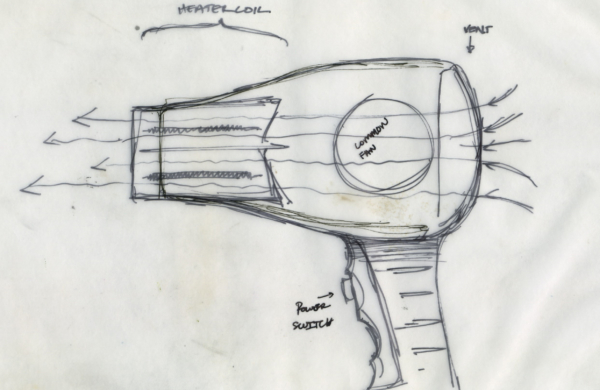 HEATER COIL
VENTS
COMMON
FAN
POWER
SWITCH